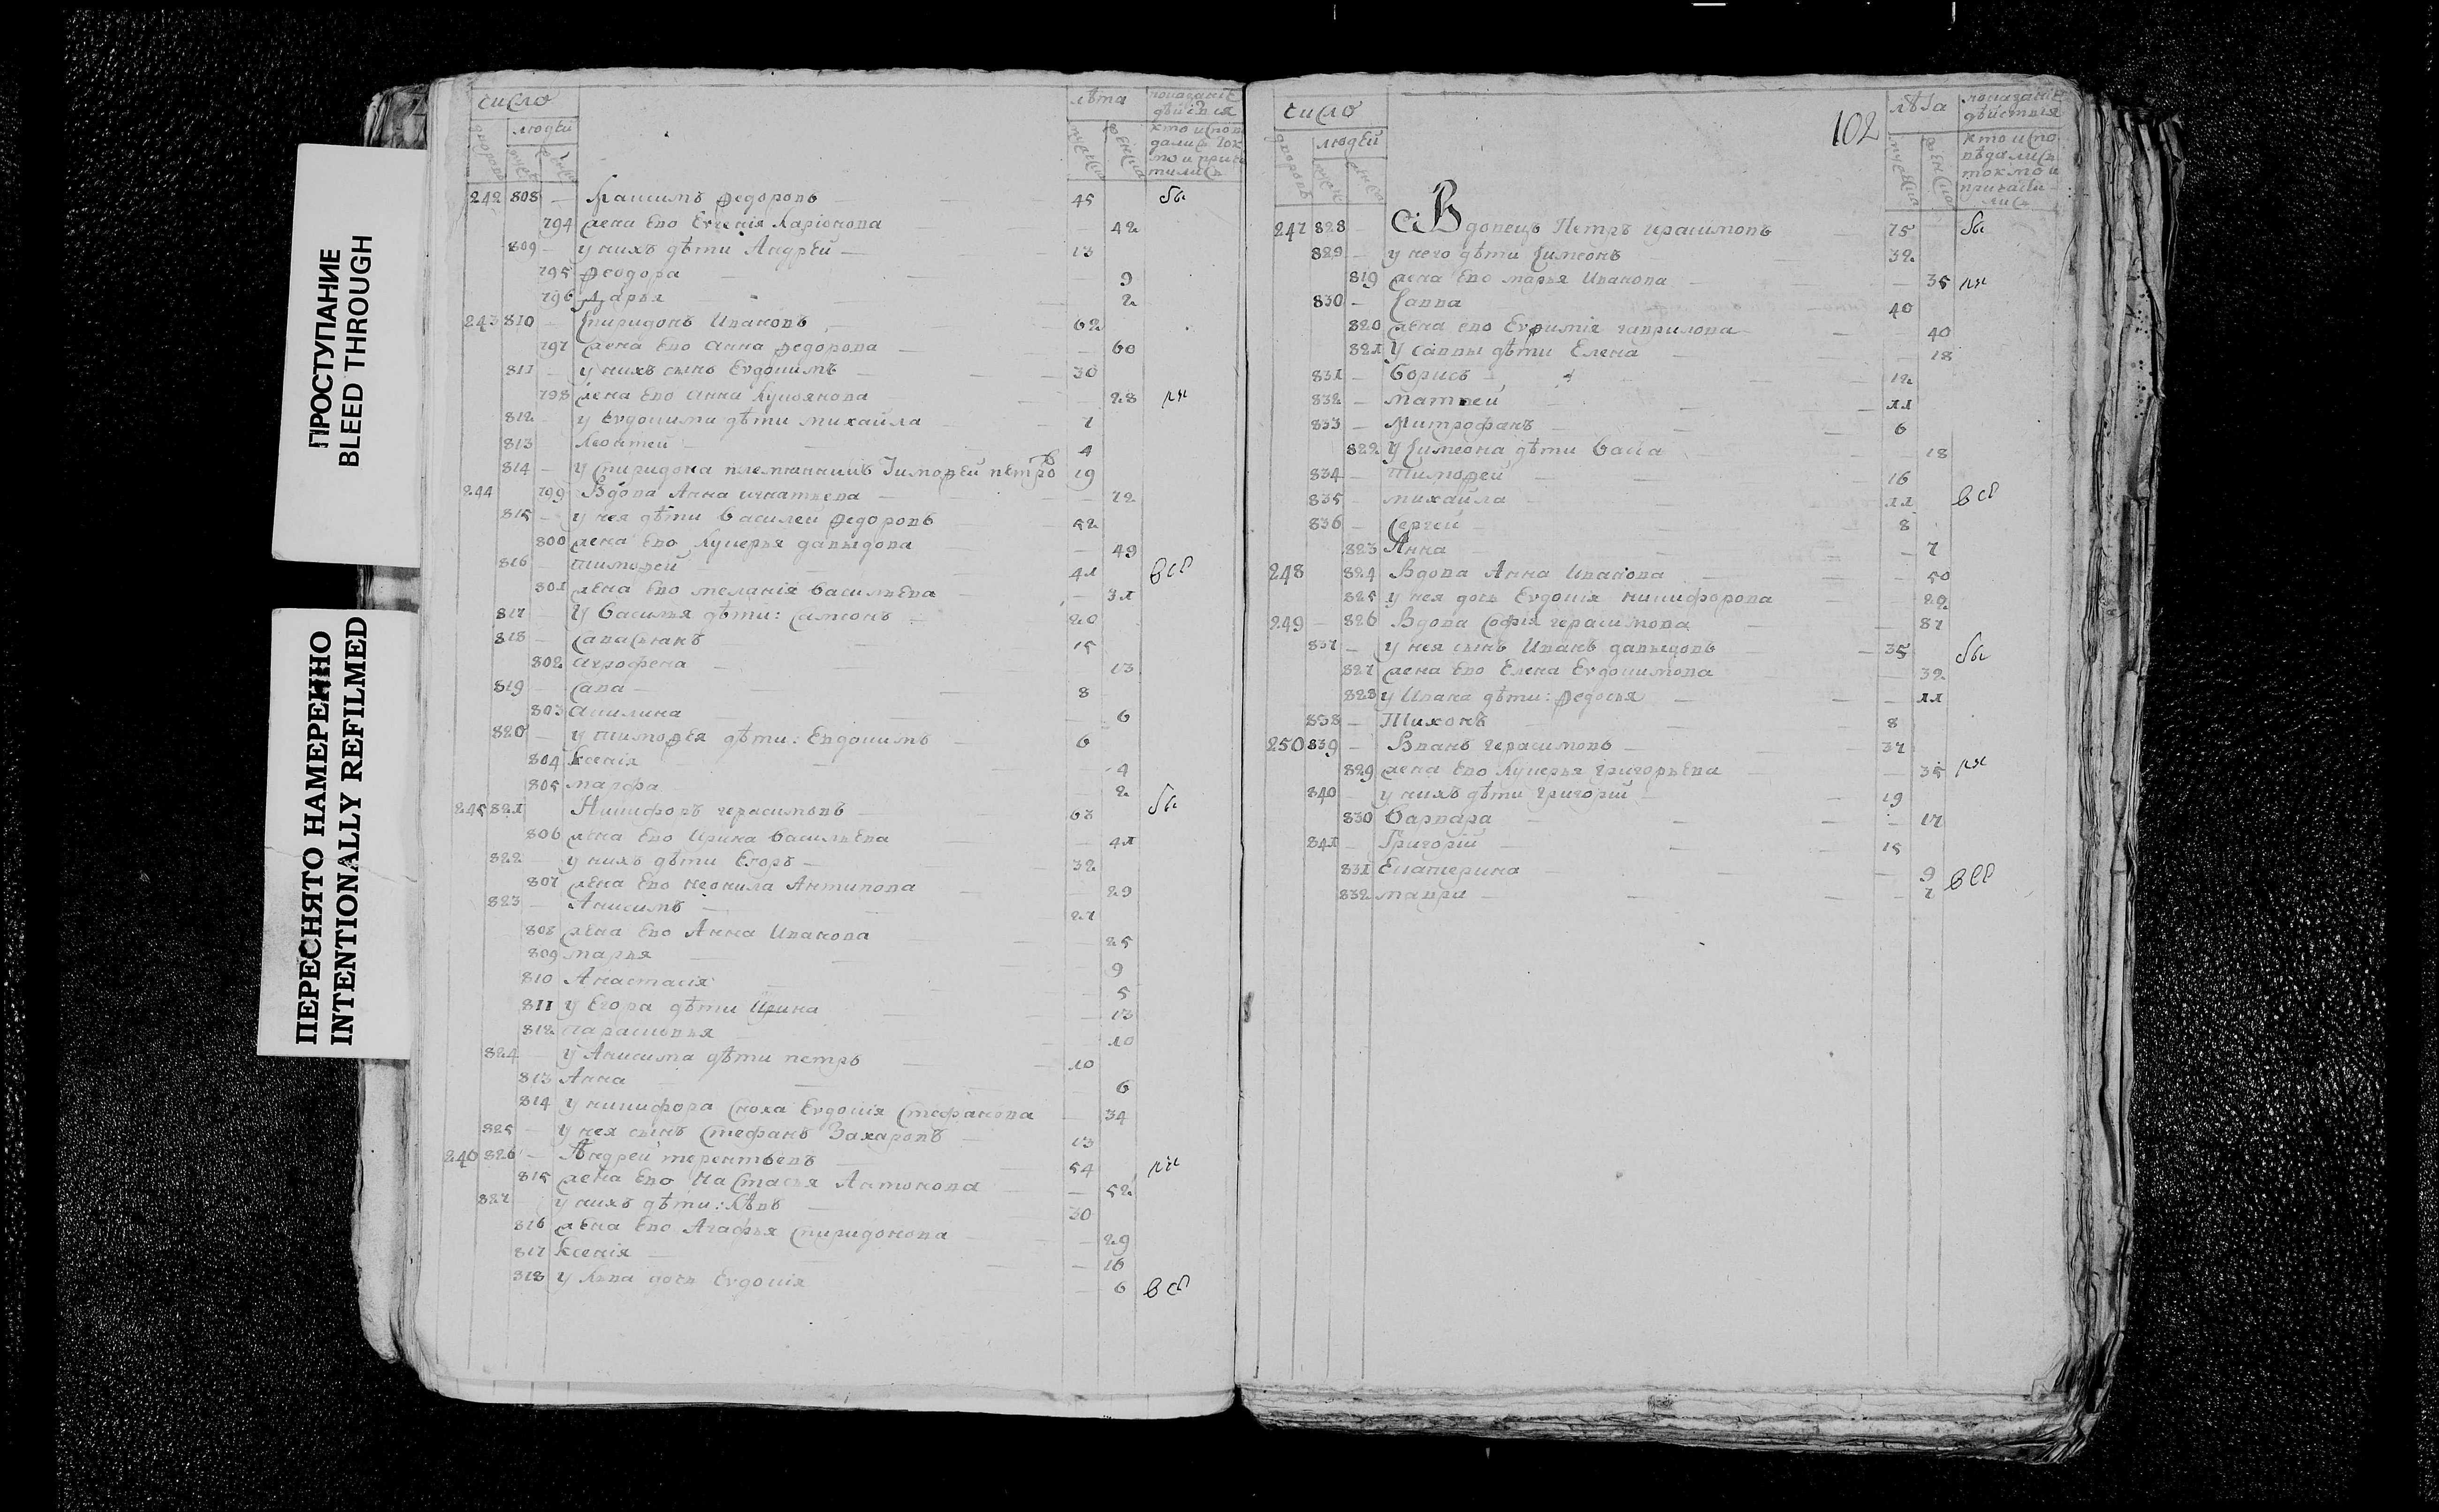 ПРОСТУПАНИЕ
BLEED THROUGH
ПЕРЕСНЯТО НАМЕРЕННО
INTENTIONALLY REFILMED
число
людей
лѣта
242 808 — Максимъ Ѳедоровъ — 45
794 жена Ево Евгенія Ларіонова 42
809 — у нихъ дѣти Андрѣй — 13
795 Ѳеодора 9
796 Дарья 2
243 810 — Спиридонъ Ивановъ 62
797 жена Ево Анна Ѳедорова — 60
811 — у нихъ сынъ Евдокимъ 30
798 жена Ево Анна 28
812 у Евдокима дѣти михайла 7
813 Леонтей 4
814 — у Спиридона племянникъ Тимоѳей петровъ 19
244 799 Вдова Анна игнатьева 72
815 — у нея дѣти Василей Ѳедоровъ 52
800 жена Ево Лукерья давыдова 49
816 тимоѳей 41
801 жена Ево меланія васильева 31
817 — У Василья дѣти: Самсонъ 20
818 — Савастьянъ 15
802 Агрофена 13
819 — Сава — 8
803 Акилина 6
820 — у тимоѳея дѣти: Евдокимъ 6
804 Ксенія 4
805 марфа 2
245 821 Никифоръ герасимовъ 63
806 жена Ево Ирина васильева 41
822 у нихъ дѣти Егоръ — 32
807 жена Ево неонила Антипова 29
823 — Анисимъ 27
808 жена Ево Анна Иванова 25
809 марья 9
810 Анастасія 5
811 у Егора дѣти Ирина 13
812 парасковья 10
824 — у Анисима дѣти петръ 10
813 Анна 6
814 у никифора сноха Евдокія Стефанова 34
825 — у нея сынъ Стефанъ Захаровъ 13
246 826 — Андрей терентьевъ 54
815 жена Ево Настасья Антонова 52
827 у нихъ дѣти: Левъ 30
816 жена Ево Агафья Спиридонова 29
817 Ксенія 16
818 у Льва дочь Евдокія 6
102
число
людей
лѣта
247 828 — Вдовецъ Петръ герасимовъ 75
829 — у него дѣти Симеонъ 32
819 жена Ево марья Иванова — 35
830 — Савва 40
820 жена ево Евѳимія гаврилова 40
821 У саввы дѣти Елена 18
831 — Борисъ 12
832 — матвей 11
833 — Митрофанъ 6
822 У Симеона дѣти 18
834 — тимоѳей 16
835 — михайла 11
836 — Сергей 8
823 Анна 7
248 824 Вдова Анна Иванова 50
825 у нея дочь Евдокія никифорова 22
249 826 Вдова Софія герасимова 87
837 — у нея сынъ Иванъ давыдовъ 35
827 жена Ево Елена Евдокимова 32
828 у Ивана дѣти: Ѳедосья 11
838 — Тихонъ 8
250 839 — Иванъ герасимовъ 37
829 жена Ево Лукерья григорьева 35
840 у нихъ дѣти григорій 19
830 Варвара 17
841 — Григорій 15
831 Екатерина 9
832 мавра 7